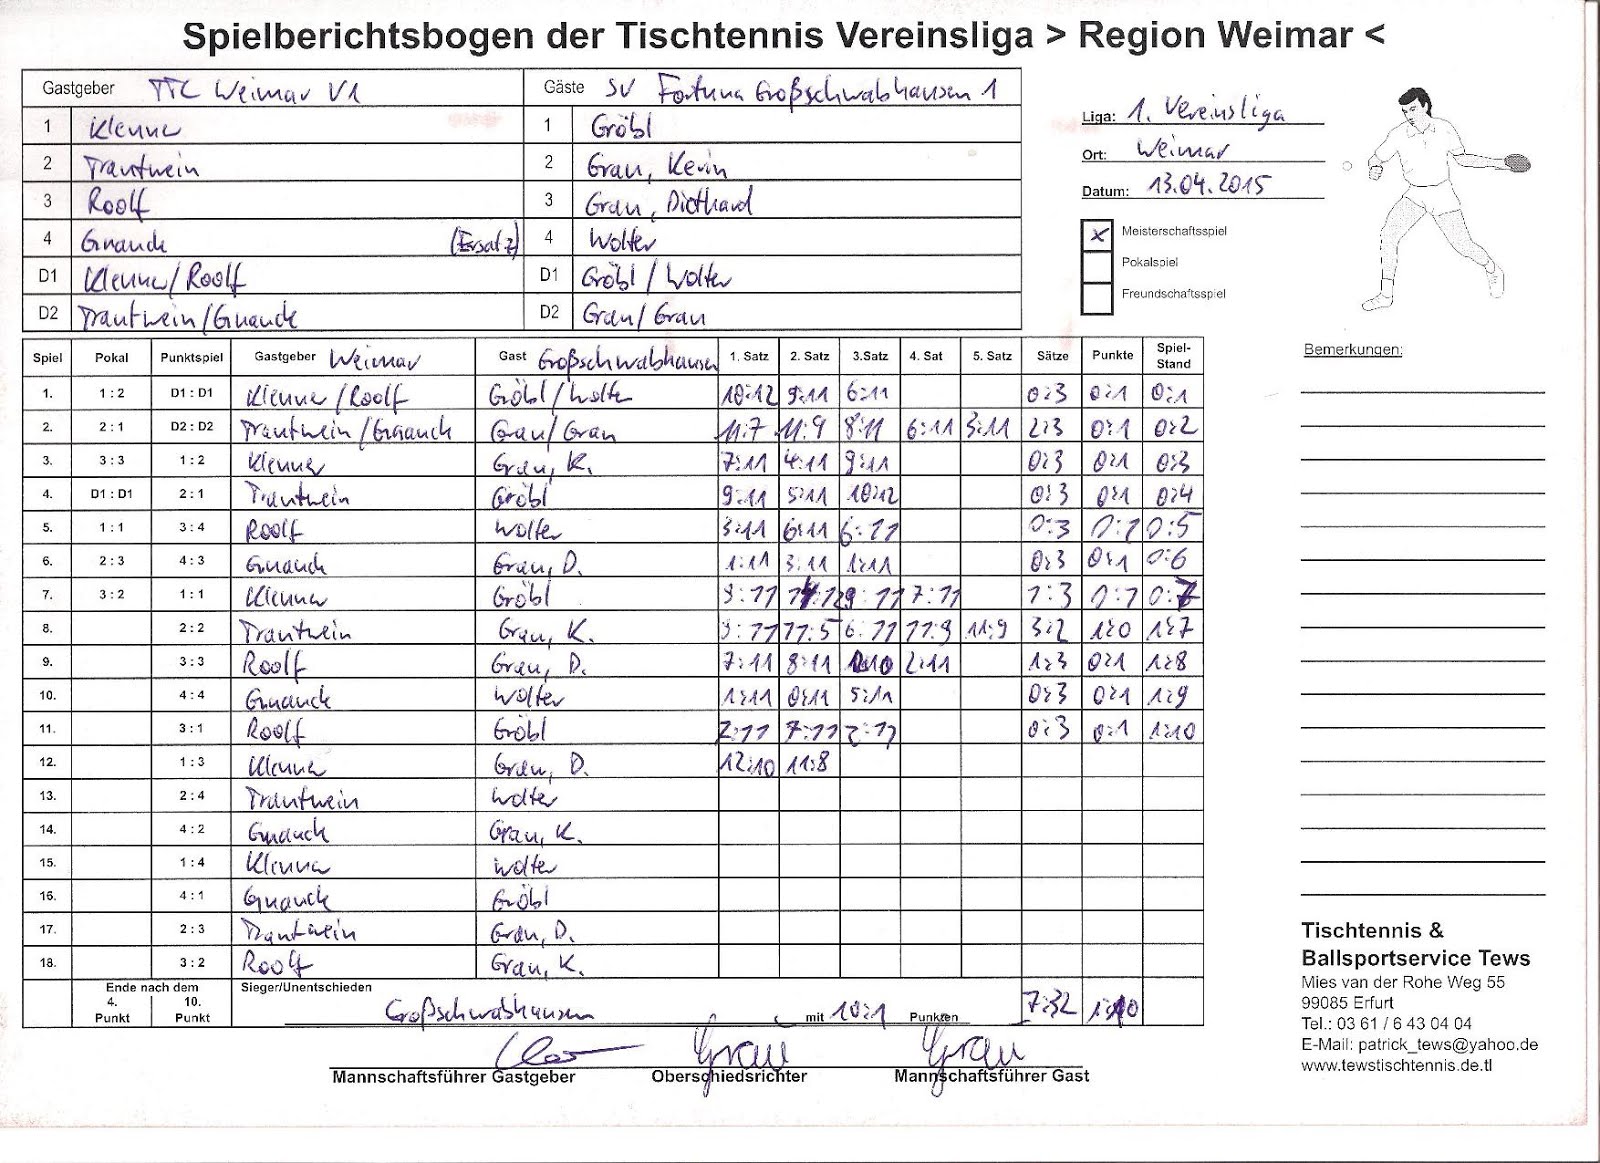 Spielberichtsbogen der Tischtennis Vereinsliga > Region Weimar <
Gastgeber TTC Weimar V1 Gäste SV Fortuna Großschwabhausen 1
1 Klenner 1 Gröbl
2 Trautwein 2 Grau, Kevin
3 Roolf 3 Grau, Diethard
4 Gnauck (Ersatz) 4 Wolter
D1 Klenner/Roolf D1 Gröbl / Wolter
D2 Trautwein/Gnauck D2 Grau/ Grau
Liga: 1. Vereinsliga
Ort: Weimar
Datum: 13.04.2015
x Meisterschaftsspiel
Pokalspiel
Freundschaftsspiel
Spiel Pokal Punktspiel Gastgeber Weimar Gast Großschwabhausen 1. Satz 2. Satz 3.Satz 4. Sat 5. Satz Sätze Punkte Spiel-Stand
1. 1 : 2 D1 : D1 Klenner/Roolf Gröbl/Wolter 10:12 9:11 6:11 0:3 0:1 0:1
2. 2 : 1 D2 : D2 Trautwein/Gnauck Grau/Grau 11:7 11:9 8:11 6:11 3:11 2:3 0:1 0:2
3. 3 : 3 1 : 2 Klenner Grau, K. 7:11 4:11 9:11 0:3 0:1 0:3
4. D1 : D1 2 : 1 Trautwein Gröbl 9:11 5:11 10:12 0:3 0:1 0:4
5. 1 : 1 3 : 4 Roolf Wolter 3:11 6:11 6:11 0:3 0:1 0:5
6. 2 : 3 4 : 3 Gnauck Grau, D. 1:11 3:11 1:11 0:3 0:1 0:6
7. 3 : 2 1 : 1 Klenner Gröbl 9:11 9:11 7:11 1:3 0:1 0:7
8. 2 : 2 Trautwein Grau, K. 9:11 11:5 6:11 11:9 11:9 3:2 1:0 1:7
9. 3 : 3 Roolf Grau, D. 7:11 8:11 2:11 1:3 0:1 1:8
10. 4 : 4 Gnauck Wolter 1:11 0:11 5:11 0:3 0:1 1:9
11. 3 : 1 Roolf Gröbl 2:11 7:11 2:11 0:3 0:1 1:10
12. 1 : 3 Klenner Grau, D. 12:10 11:8
13. 2 : 4 Trautwein Wolter
14. 4 : 2 Gnauck Grau, K.
15. 1 : 4 Klenner Wolter
16. 4 : 1 Gnauck Gröbl
17. 2 : 3 Trautwein Grau, D.
18. 3 : 2 Roolf Grau, K.
Ende nach dem
4. Punkt 10. Punkt
Sieger/Unentschieden
Großschwabhausen mit 10:1 Punkten 7:32 1:10
Grau Grau
Mannschaftsführer Gastgeber Oberschiedsrichter Mannschaftsführer Gast
Bemerkungen:
Tischtennis &
Ballsportservice Tews
Mies van der Rohe Weg 55
99085 Erfurt
Tel.: 03 61 / 6 43 04 04
E-Mail: patrick_tews@yahoo.de
www.tewstischtennis.de.tl